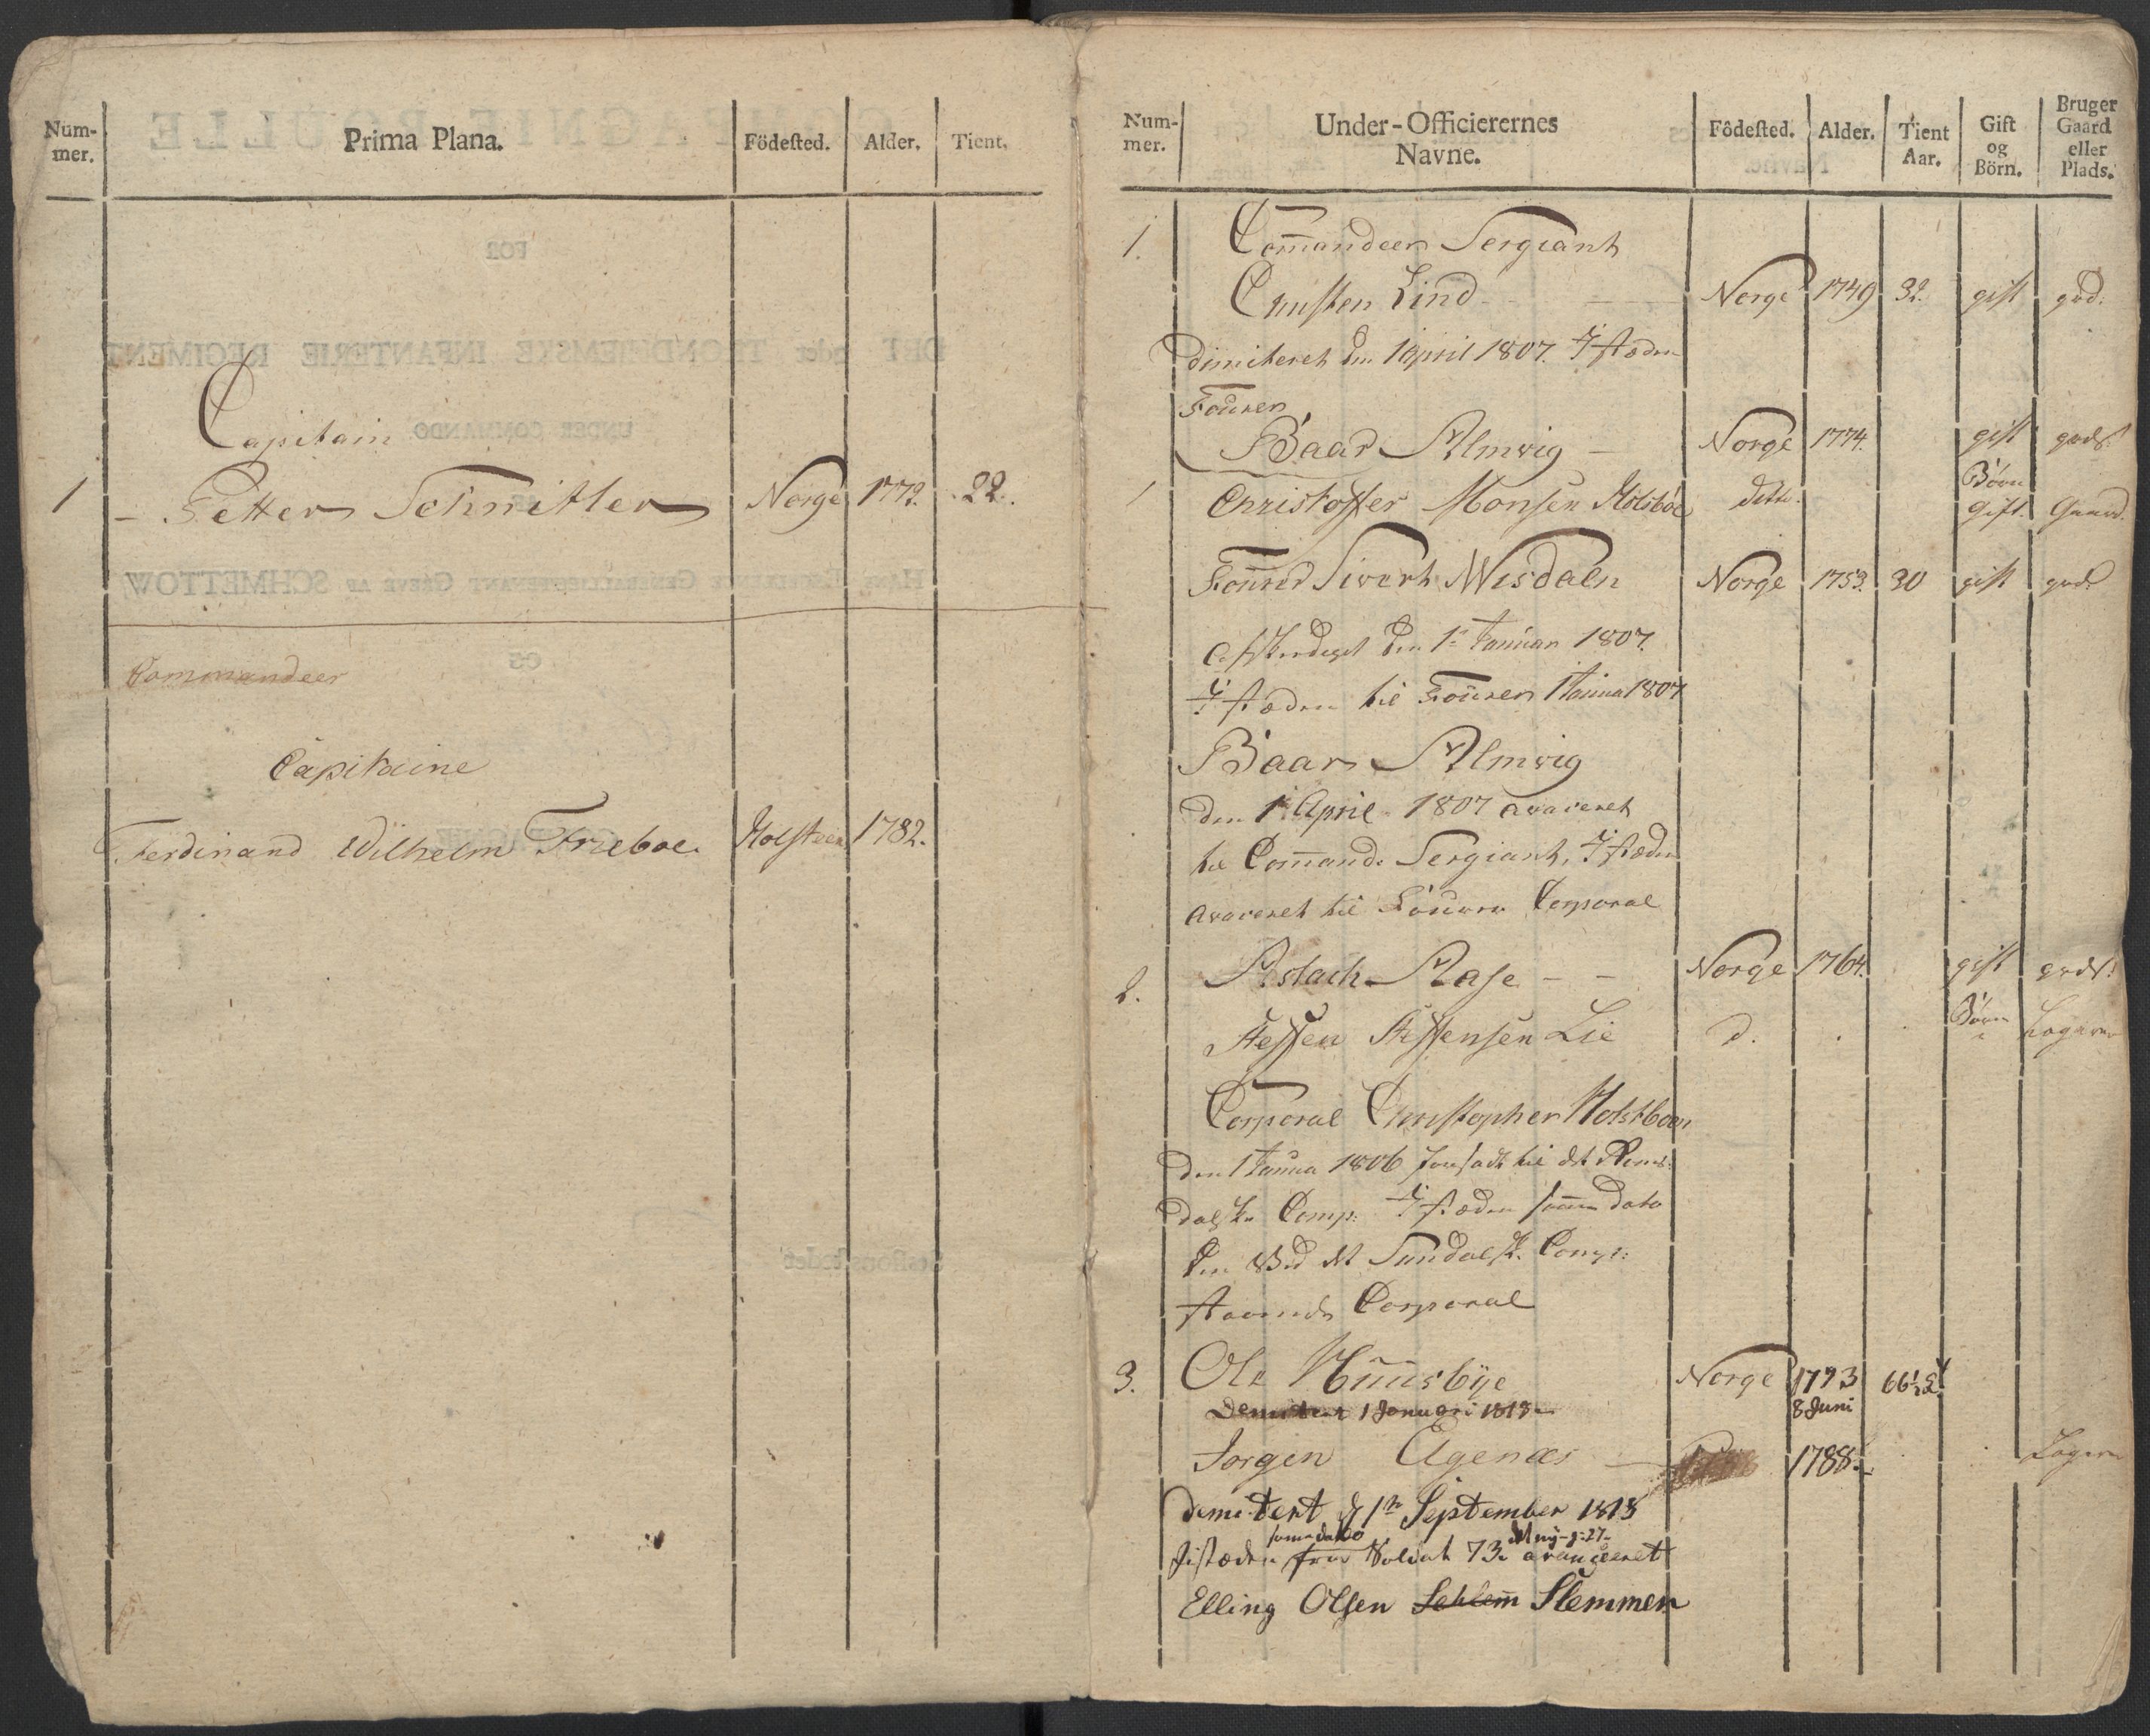 Num-
mer.
Prima Plana.
Födested.
Alder.
Tient.
Capitain
1 - Petter Schnitler Norge 1772. 22.
Commandeer
Capitaine
Ferdinand Wilhelm Frieboe. Holsteen 1782.
Num-
mer.
Under-Officierernes
Navne.
Födested.
Alder.
Tient
Aar.
Gift
og
Börn.
Bruger
Gaard
eller
Plads.
1. Com̄andeer Sergiant
Christen Lind Norge 1749 32. gift
dimiteret den 1 April 1807. Istæden
Fourer
Baar Almvig Norge 1774. gift
Christoffer Monsen ditto. Børn Gift. Gaard.
Fourer Sivert Wisdaln Norge 1753. 30 gift
den 1. Januar 1807.
Istæden til Fourer 1 Janua 1807
Baar Almvig
den 1. April 1807 avaceret
til Com̄and. Sergiant, Istæden
avaceret til Corporal
2. Aslach Aase - - Norge 1764. gift
Steffen Steffensen Lie d. Børn
Corporal Christopher Holstboen
den 1 Janua 1806 forsadt til det Roms-
dalske Comp: Istæden dato
den ved det Sundalsk. Comp:
staaende Corporal
3. Ole Huusbye Norge 1793
8 Juni
1 Januari 1813
Jorgen Agenæs 1788.
demitert d 1te September 1813
Istæden fra Soldat 73. avangeeret
Elling Olsen Slemmen